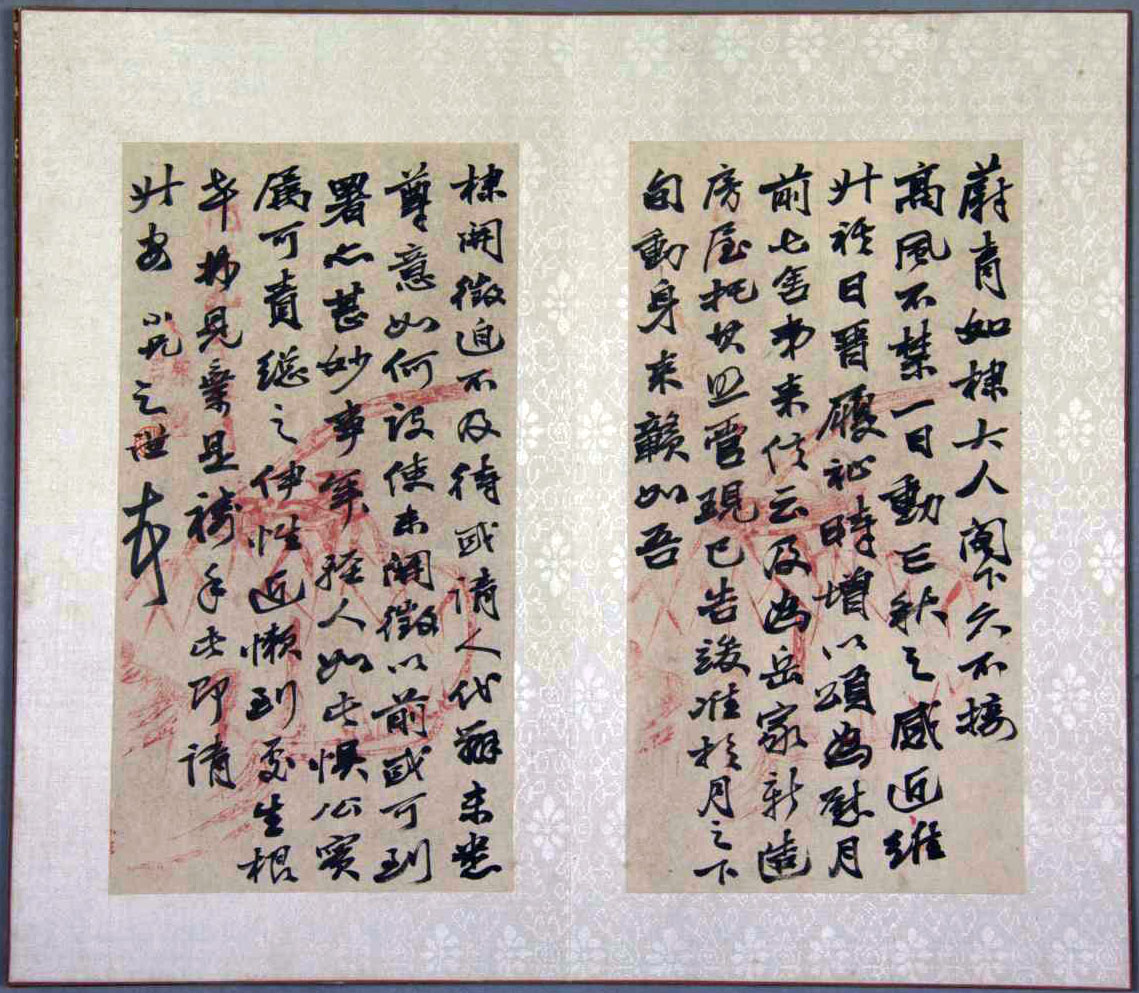 蔚青如棣大人閣下久不接
高風不禁一日動三秋之感近維
升祺日晋履祉時增以頌為慰月
前七舍弟来信云及為岳家新造
房屋托其照管現已告竣准於月之下
旬動身來贛如吾
棣開徵迫不及待或請人代辦未悉
尊意如何設使未開徵以前或可到
署亦甚妙事軍經人如此惧公實
屬可責總之伊性近懒到處生根
幸抄見棄是禱手此即請
升安 小兄之世